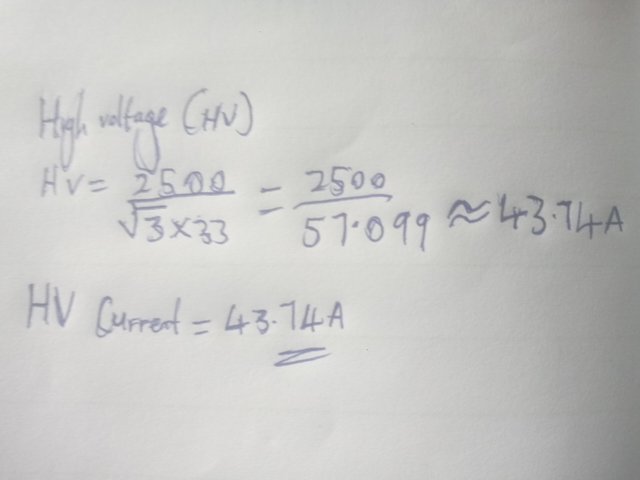 High voltage (HV)
HV = 2500 / √3 × 33 = 2500 / 57.099 ≈ 43.74A
HV Current = 43.74A